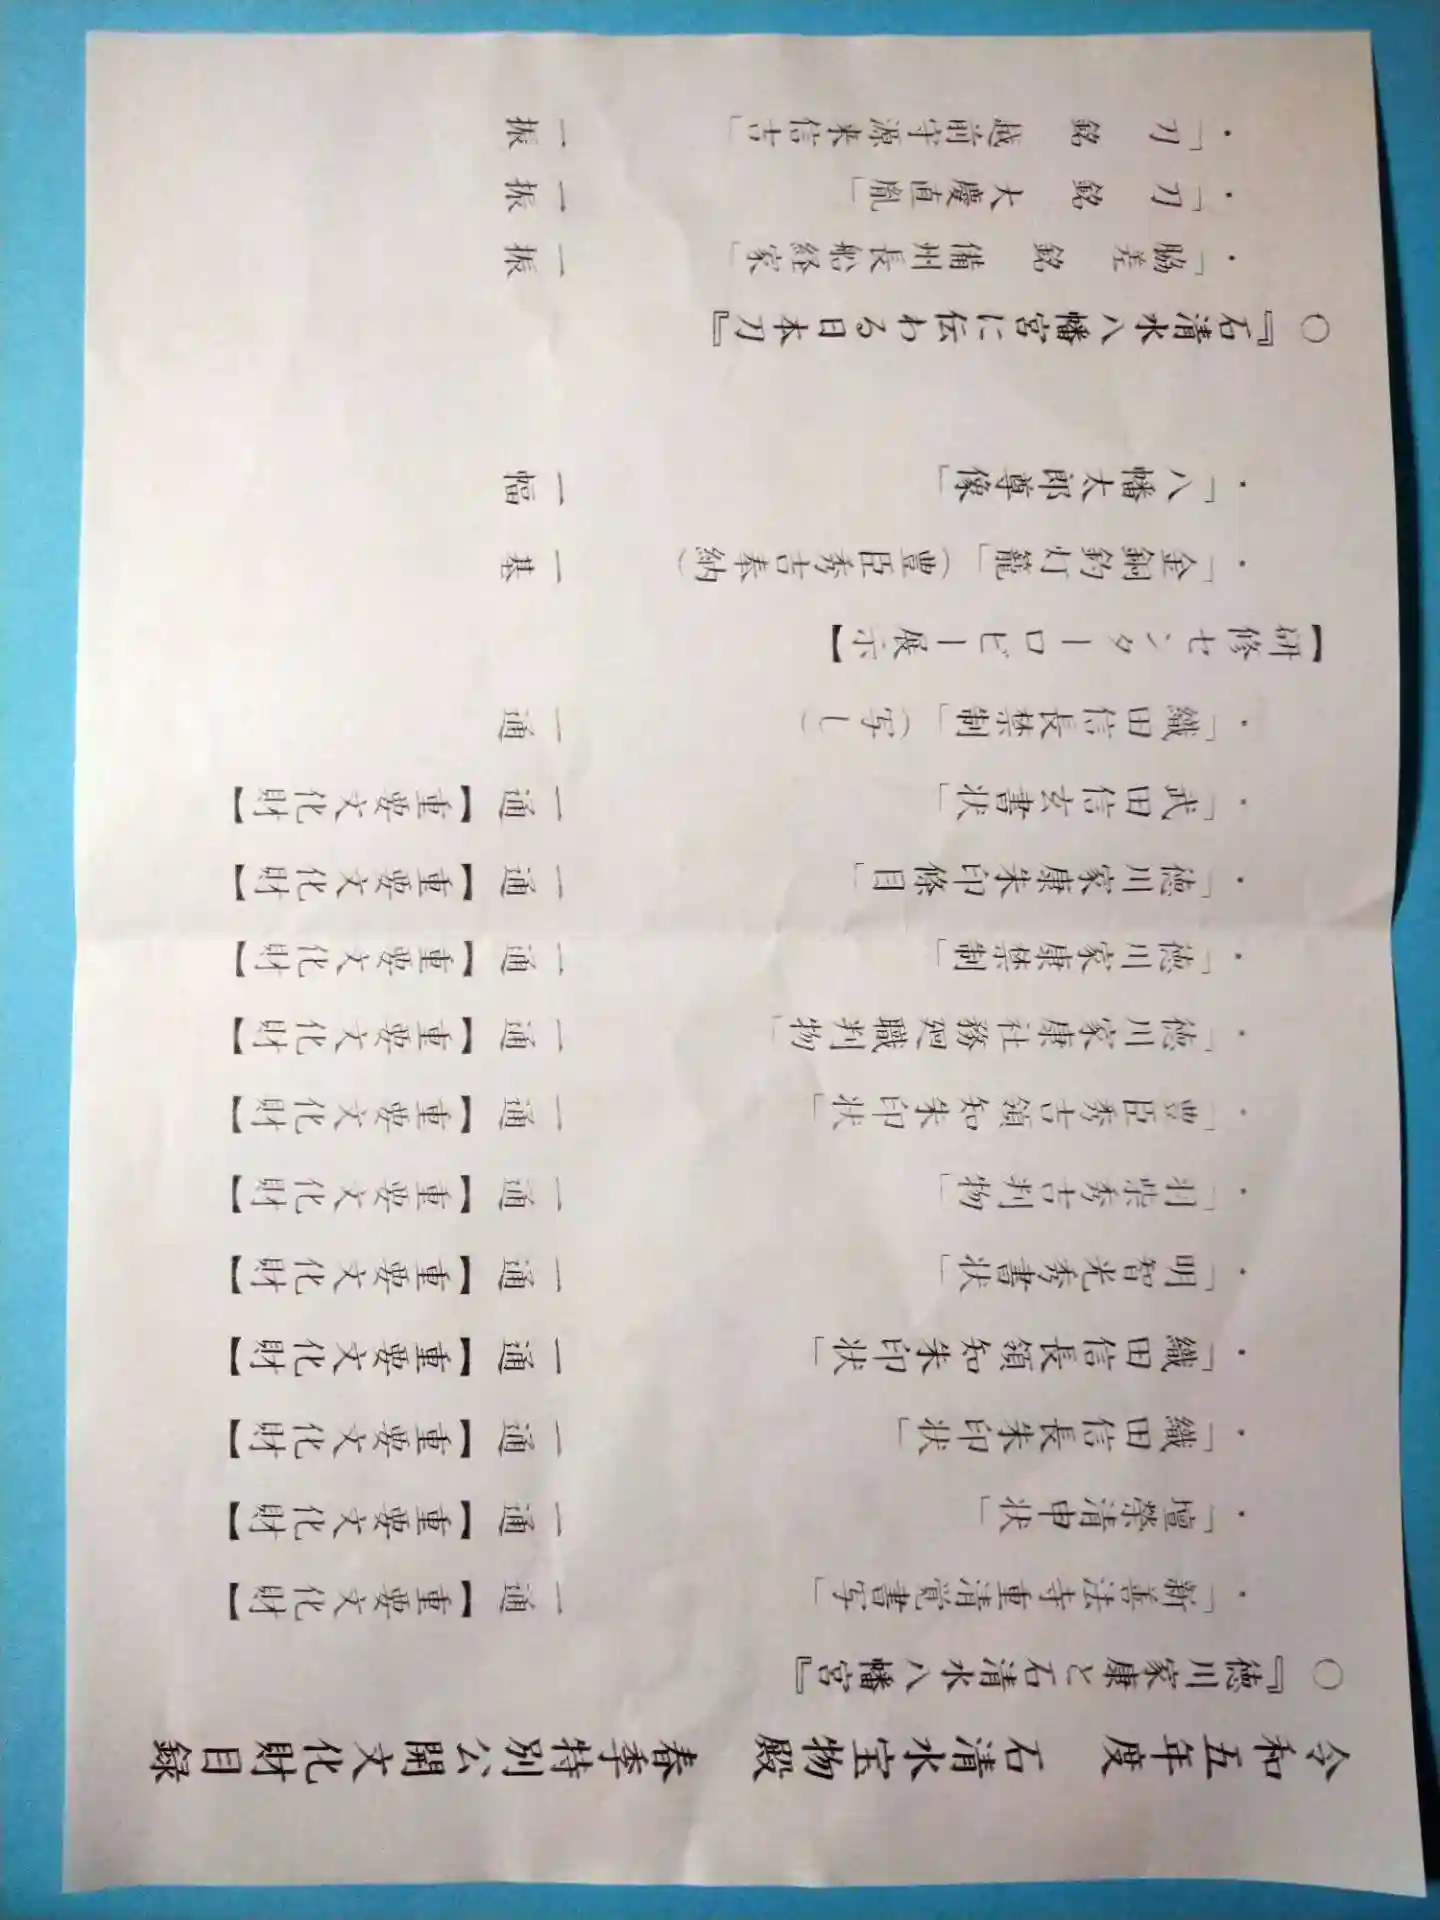 令和五年度　石清水宝物殿　春季特別公開文化財目録
○『徳川家康と石清水八幡宮』
・「新善法寺重清覚書写」　一通【重要文化財】
・「壇榮清申状」　一通【重要文化財】
・「織田信長朱印状」　一通【重要文化財】
・「織田信長領知朱印状」　一通【重要文化財】
・「明智光秀書状」　一通【重要文化財】
・「羽柴秀吉判物」　一通【重要文化財】
・「豊臣秀吉領知朱印状」　一通【重要文化財】
・「徳川家康社務廻職判物」　一通【重要文化財】
・「徳川家康禁制」　一通【重要文化財】
・「徳川家康朱印條目」　一通【重要文化財】
・「武田信玄書状」　一通【重要文化財】
・「織田信長禁制」（写し）　一通
【研修センターロビー展示】
・「金銅釣灯籠」（豊臣秀吉奉納）　一基
・「八幡太郎尊像」　一幅
○『石清水八幡宮に伝わる日本刀』
・「脇差　銘　備州長船経家」　一振
・「刀　銘　大慶直胤」　一振
・「刀　銘　越前守源来信吉」　一振